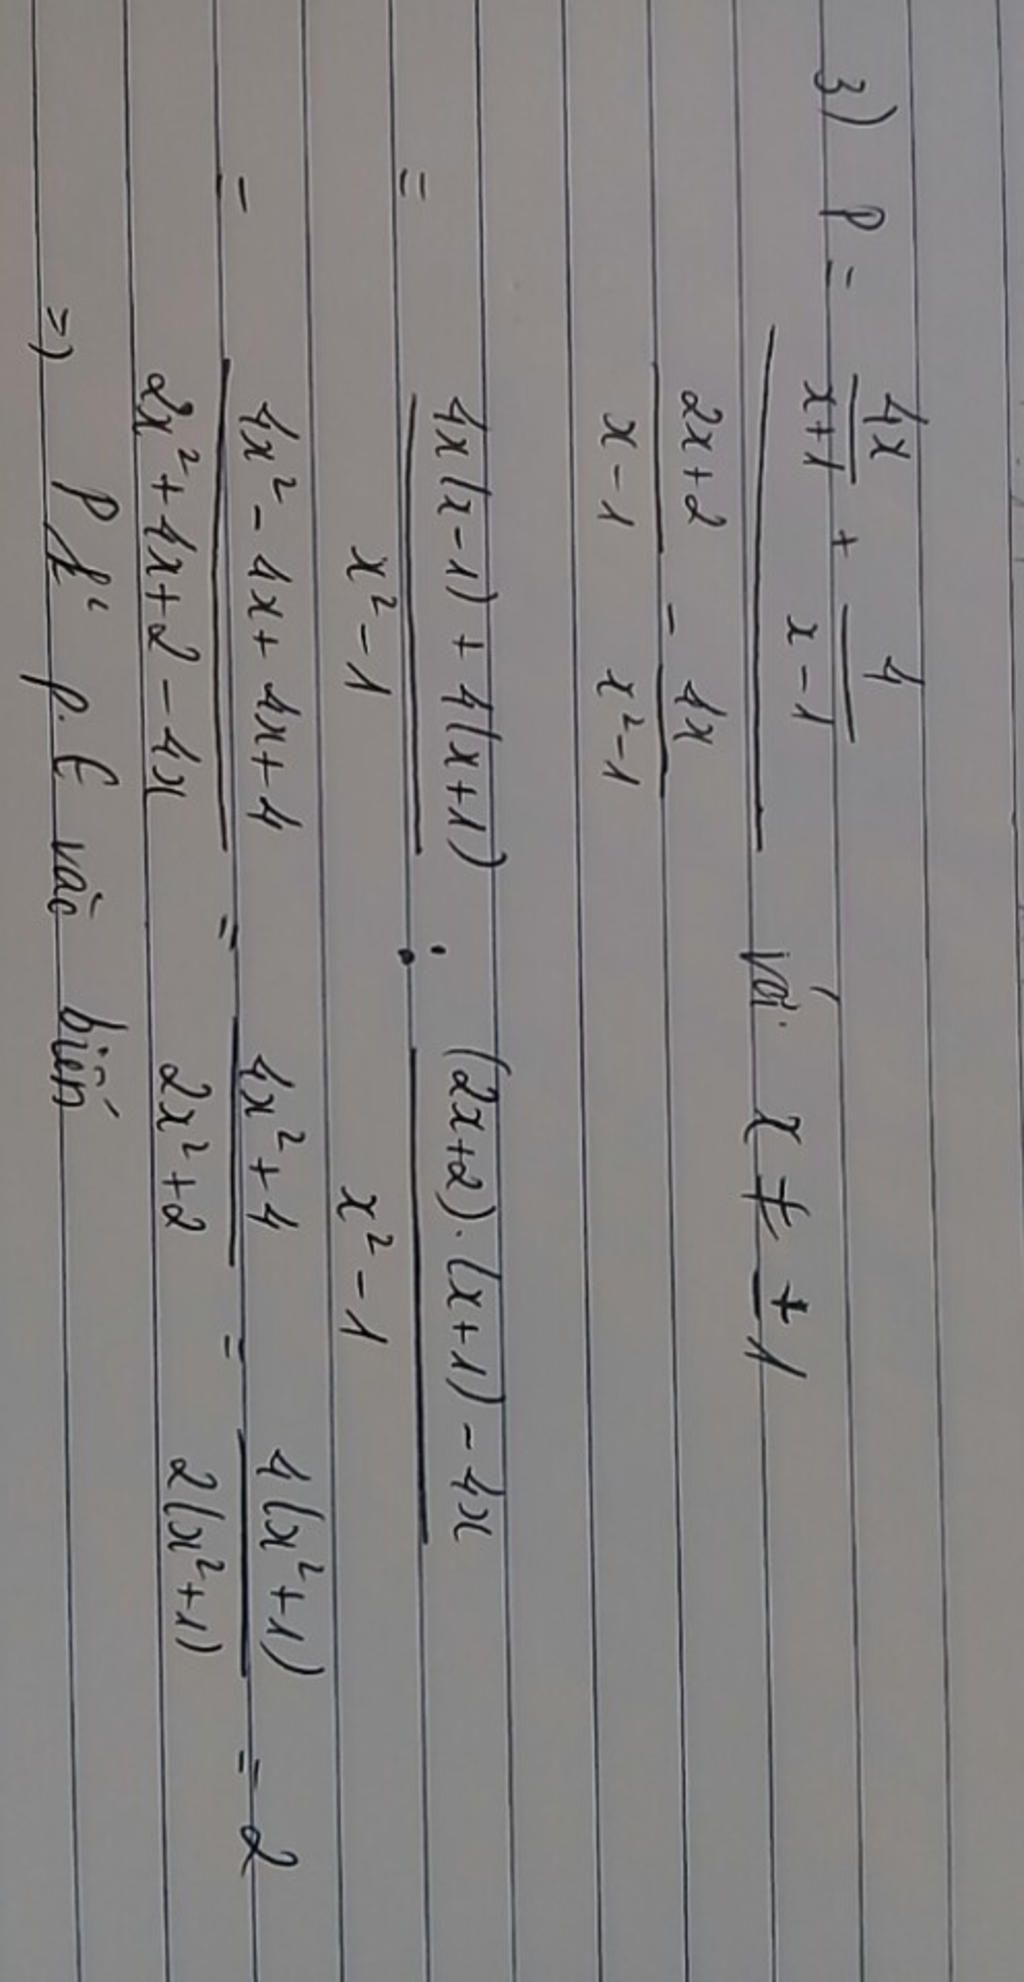 3) P = 4x/(x+1) + 4/(x-1)
với x ≠ ±1
(2x+2)/(x-1) - 4x/(x²-1)
= (4x(x-1) + 4(x+1))/(x²-1) : ((2x+2).(x+1) - 4x)/(x²-1)
= (4x² - 4x + 4x + 4)/(2x² + 4x + 2 - 4x) = (4x² + 4)/(2x² + 2) = 4(x²+1)/2(x²+1) = 2
=> P p. € vào biến